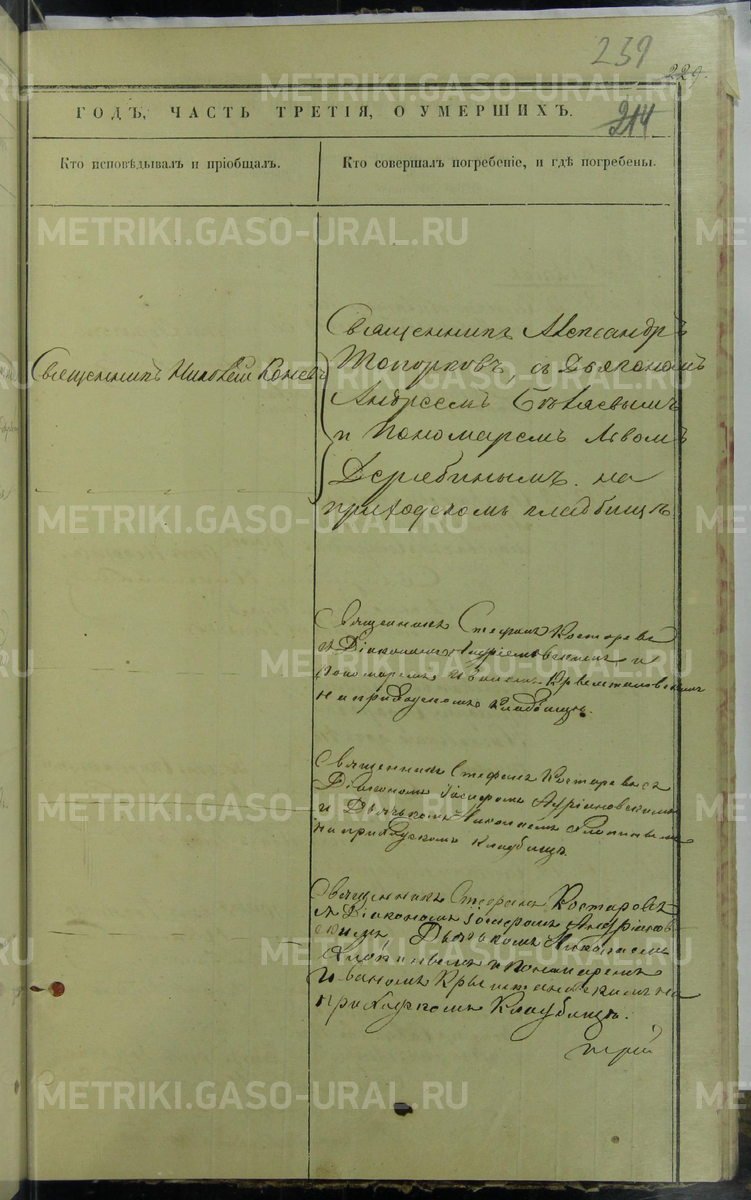 239
229.
214
ГОДЪ, ЧАСТЬ ТРЕТІЯ, О УМЕРШИХЪ.
Кто исповѣдывалъ и пріобщалъ.
Кто совершалъ погребеніе, и гдѣ погребены.
Священникъ Николай
Священникъ Александръ
Топорковъ, съ Дьякономъ
Андреемъ Бѣляевымъ
и Пономаремъ Львомъ
Дерябинымъ. на
приходскомъ кладбищѣ.
Священникъ Стефанъ Костаревъ
съ Діакономъ и
Пономаремъ Иваномъ
на приходскомъ кладбищѣ.
Священникъ Стефанъ Костаревъ съ
Діакономъ Іосифомъ Андріановскимъ
и Дьячькомъ Николаемъ
на приходскомъ кладбищѣ.
Священникъ Стефанъ Костаревъ
съ Діакономъ Іосифомъ Андріанов
скимъ Дьячькомъ Николаемъ
и Пономаремъ
Иваномъ на
приходскомъ Кладбищѣ.
METRIKI.GASO-URAL.RU